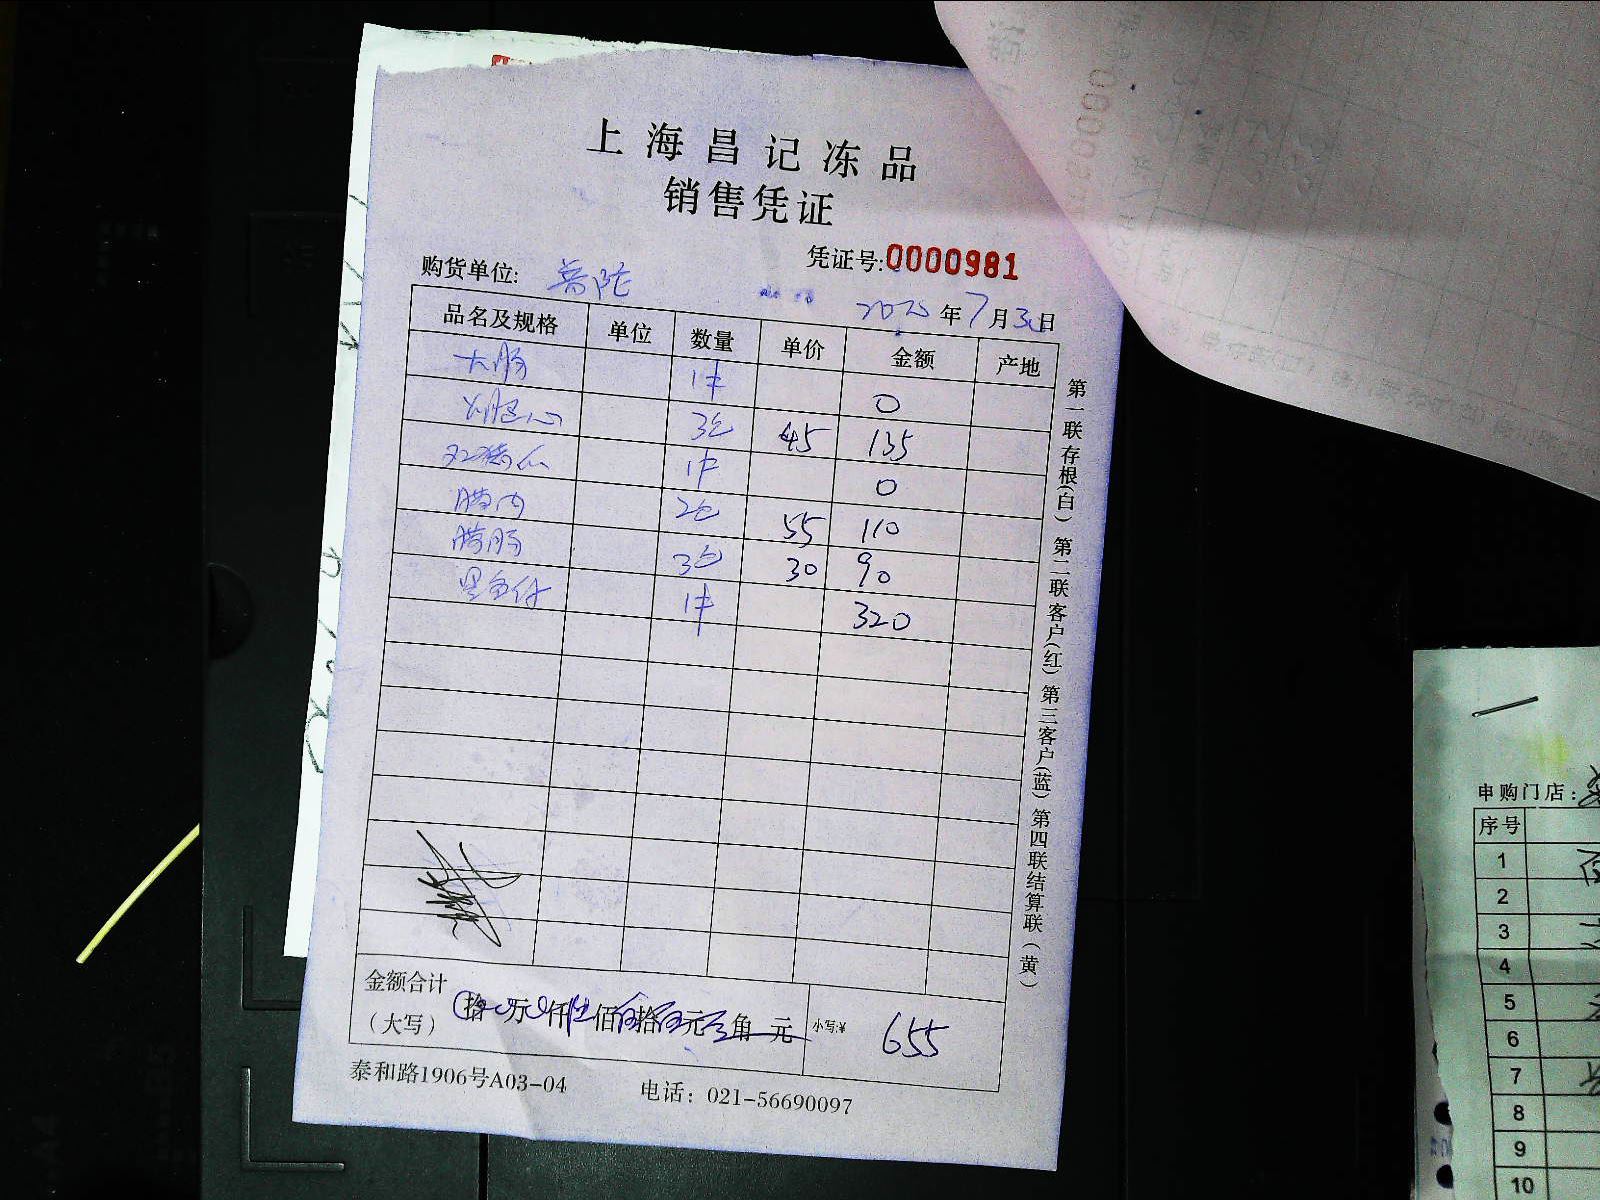 上海昌记冻品
销售凭证
凭证号:0000981
购货单位: 普陀
2025年7月30日
品名及规格 单位 数量 单价 金额 产地
大肠 1件 0
3包 45 135
1件 0
腊肉 2包 55 110
腊肠 3包 30 90
墨鱼仔 1件 320
金额合计
(大写) 拾 万 仟 陆佰伍拾伍元 角 元 小写:¥ 655
泰和路1906号A03-04 电话: 021-56690097
第一联存根(白) 第二联客户(红) 第三客户(蓝) 第四联结算联(黄)
申购门店:
序号
1
2
3
4
5
6
7
8
9
10